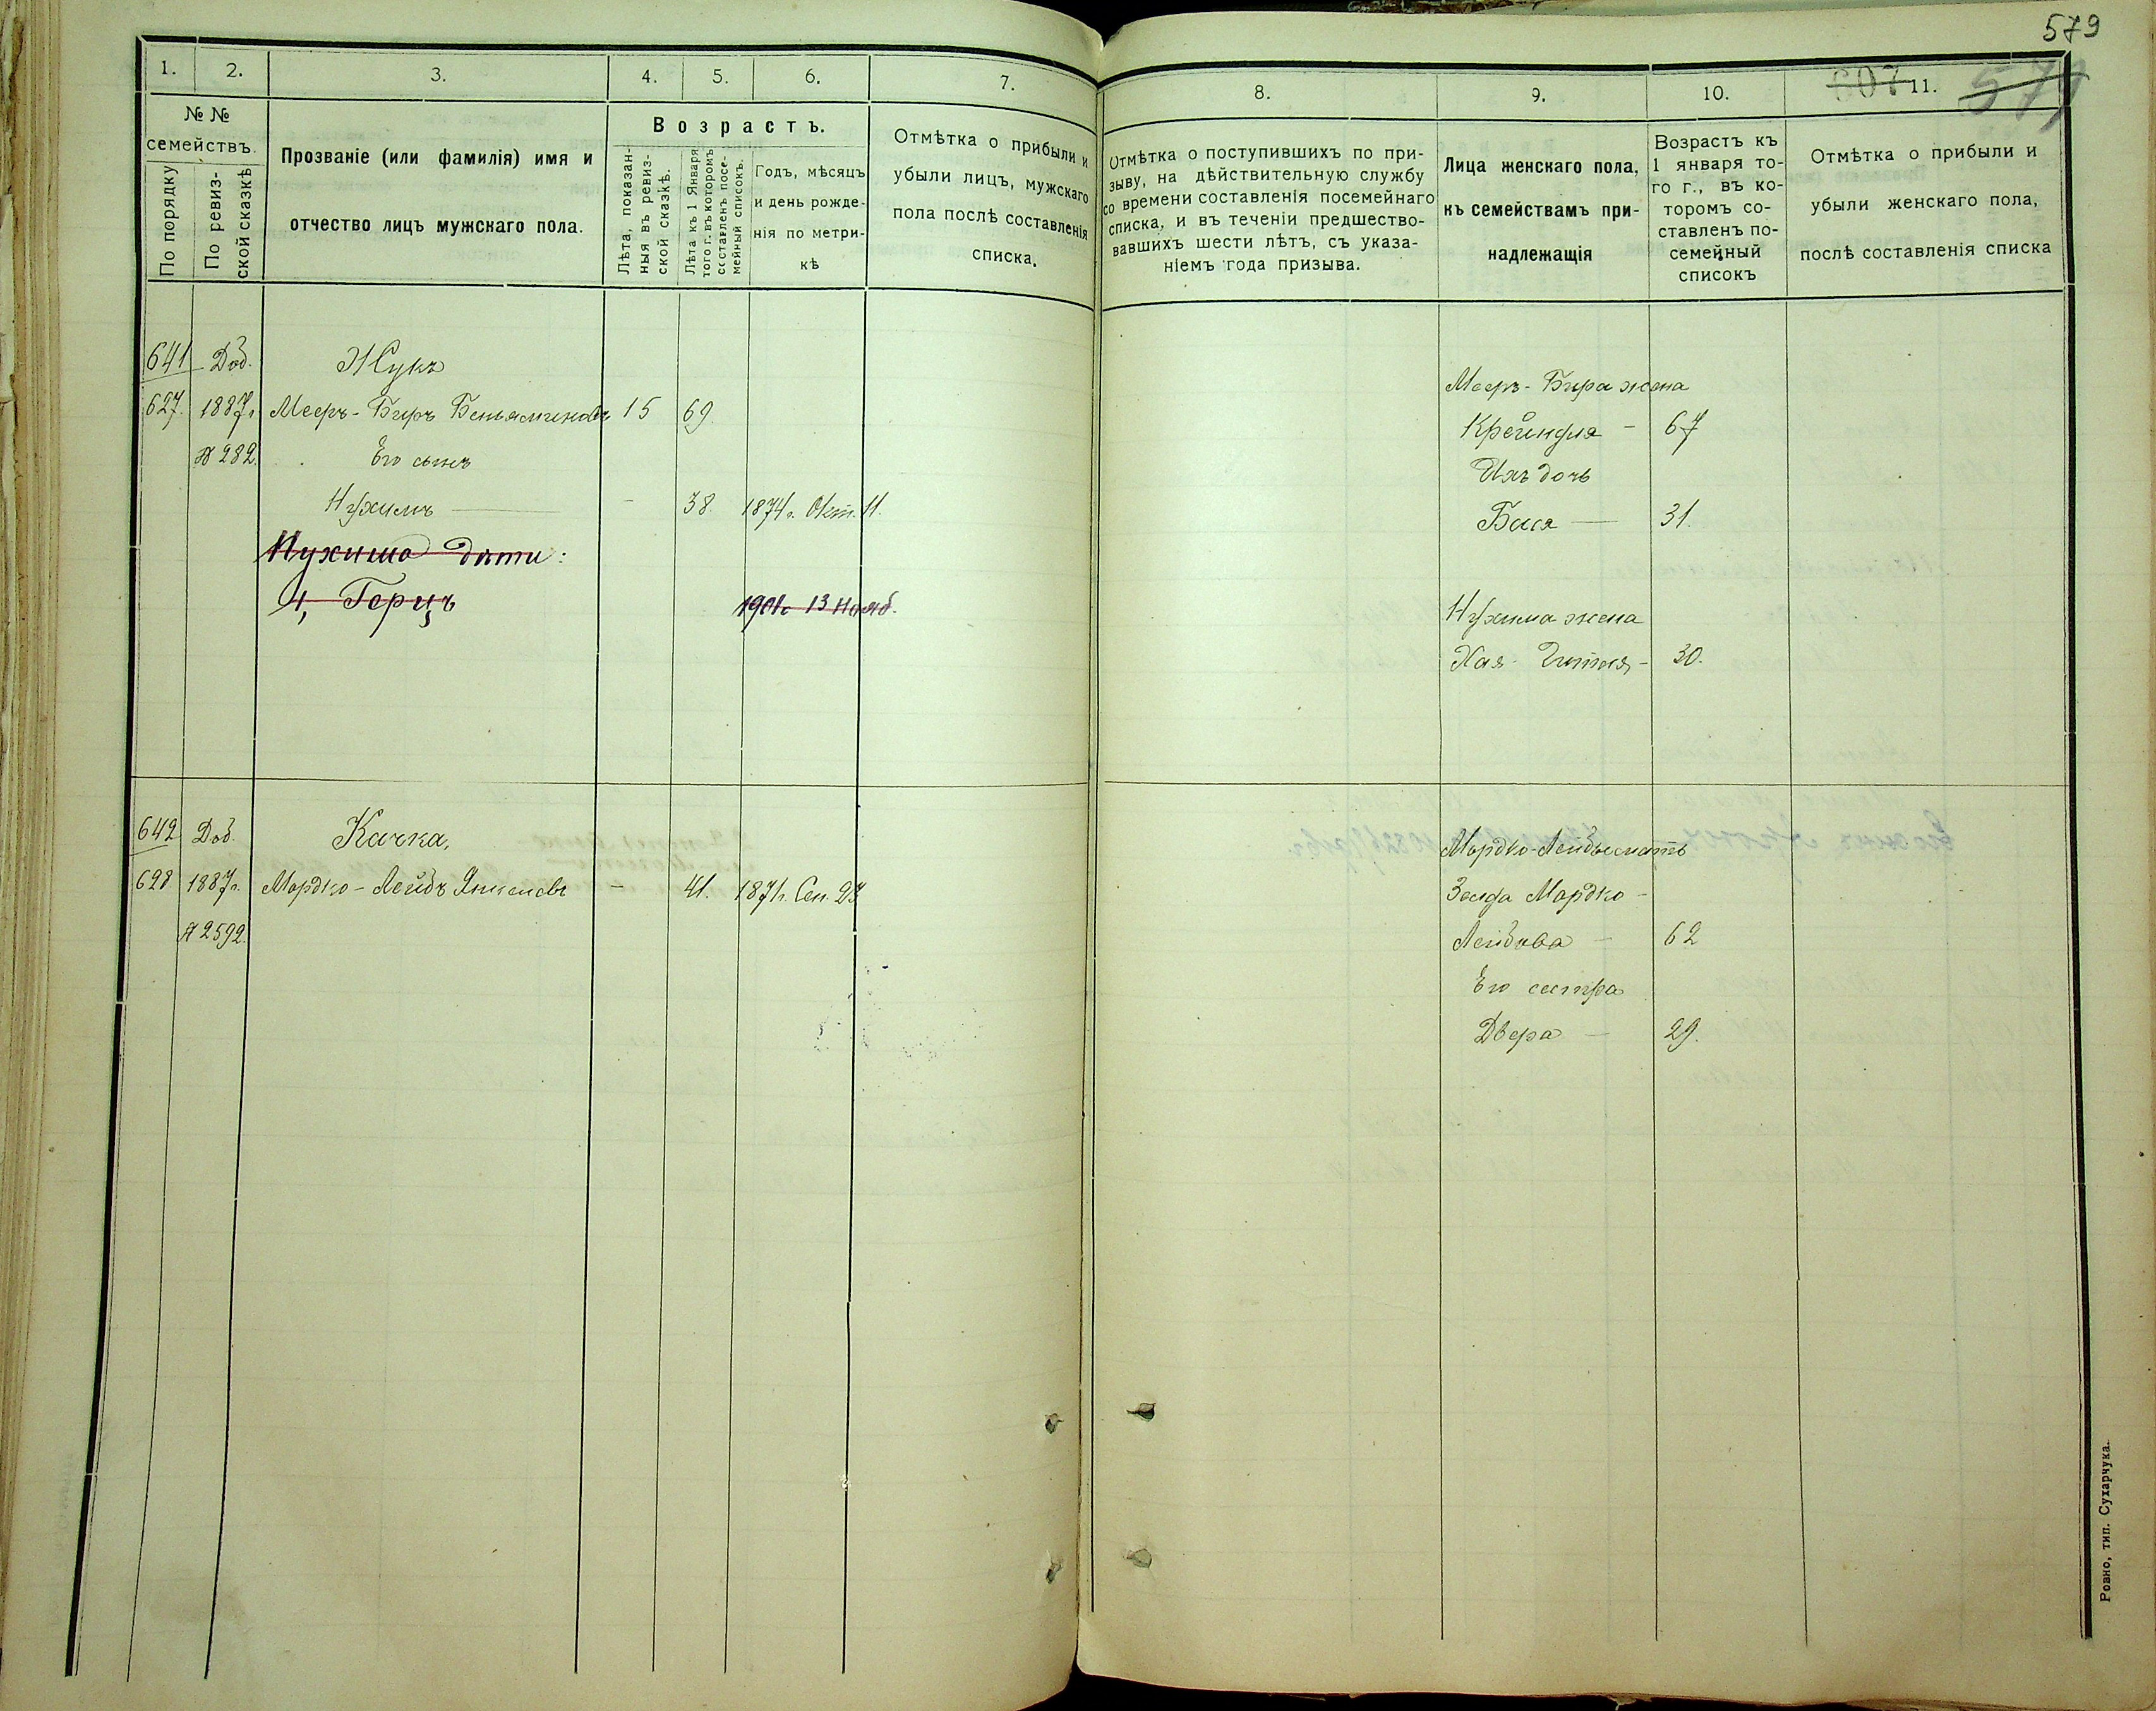 579
1.
2.
3.
4.
5.
6.
7.
№ №
семействъ.
По порядку
По ревиз-
ской сказкѣ
Прозваніе (или фамилія) имя и
отчество лицъ мужскаго пола.
Возрастъ.
Лѣта, показан-
ныя въ ревиз-
ской сказкѣ.
Лѣта къ 1 Января
того г. въ которомъ
составленъ посе-
мейный списокъ.
Годъ, мѣсяцъ
и день рожде-
нія по метри-
кѣ
Отмѣтка о прибыли и
убыли лицъ, мужскаго
пола послѣ составленія
списка.
641 Доб. Жукъ
627. 1887г Мееръ-Беръ Беньяминовъ 15 69.
№ 282. Его сынъ
Нухимъ — 38. 1874г. Окт. 11.
Нухима дѣти:
1, Герцъ 1901г 13 Нояб.
642 Доб. Качка,
628 1887г. Мордко-Лейбъ Янкелевъ — 41. 1871г. Сен. 27
№ 2592.
8.
9.
10.
607 11.
579
Отмѣтка о поступившихъ по при-
зыву, на дѣйствительную службу
со времени составленія посемейнаго
списка, и въ теченіи предшество-
вавшихъ шести лѣтъ, съ указа-
ніемъ года призыва.
Лица женскаго пола,
къ семействамъ при-
надлежащія
Возрастъ къ
1 января то-
го г., въ ко-
торомъ со-
ставленъ по-
семейный
списокъ
Отмѣтка о прибыли и
убыли женскаго пола,
послѣ составленія списка
Мееръ-Бера жена
Крейндля — 67
Ихъ дочь
Бася — 31.
Нухима жена
Хая-Гитля — 30.
Мордко-Лейбы мать
Зельда Мордко-
Лейбова — 62
Его сестра
Двера — 29.
Ровно, тип. Сухарчука.